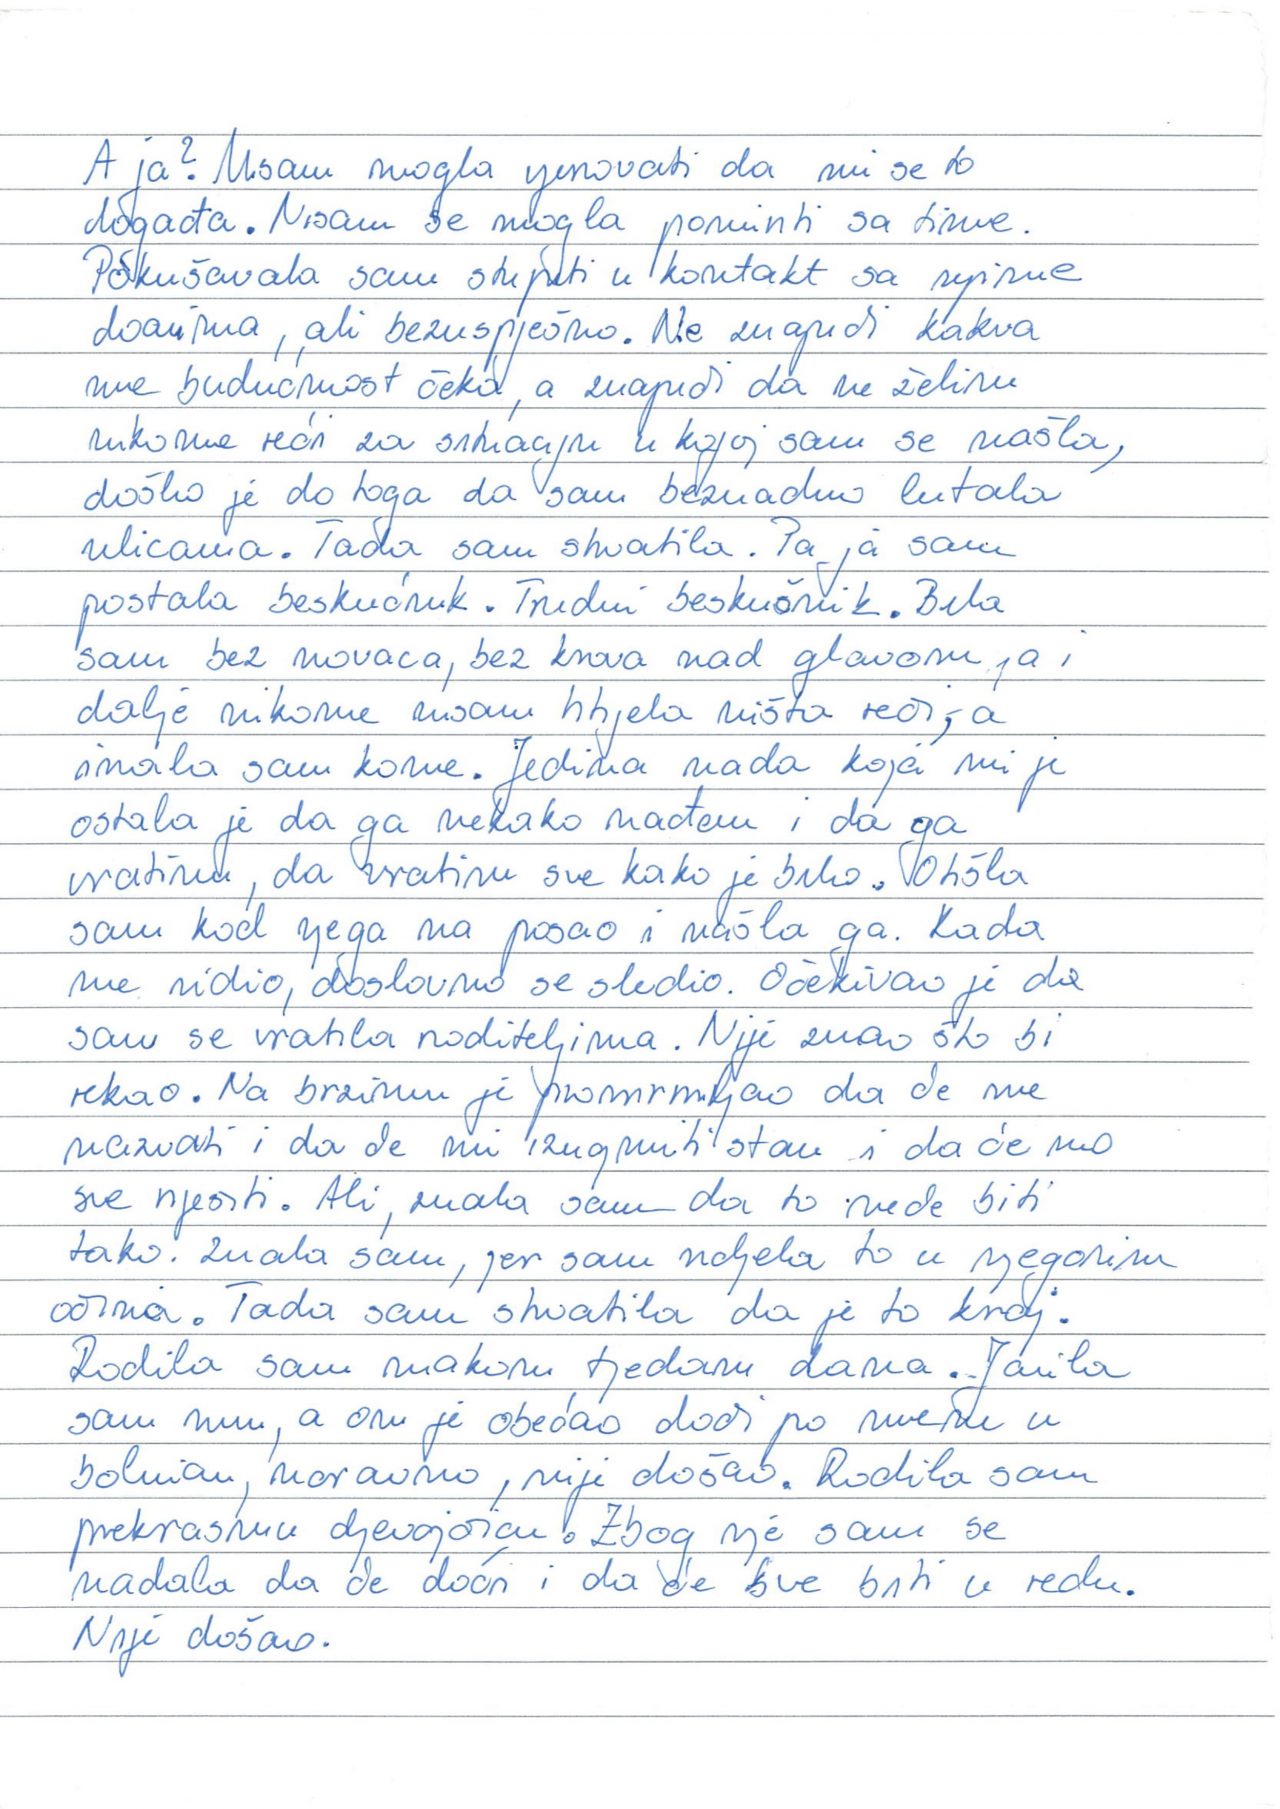 A ja? Nisam mogla vjerovati da mi se to
događa. Nisam se mogla pomiriti sa time.
Pokušavala sam stupiti u kontakt sa njime
danima, ali bezuspješno. Ne znajući kakva
me budućnost čeka, a znajući da ne želim
nikome reći za situaciju u kojoj sam se našla,
došlo je do toga da sam beznadno lutala
ulicama. Tada sam shvatila. Pa ja sam
postala beskućnik. Trudni beskućnik. Bila
sam bez novaca, bez krova nad glavom, a i
dalje nikome nisam htjela ništa reći, a
imala sam kome. Jedina nada koja mi je
ostala je da ga nekako nađem i da ga
vratim, da vratim sve kako je bilo. Otišla
sam kod njega na posao i našla ga. Kada
me vidio, doslovno se sledio. Očekivao je da
sam se vratila roditeljima. Nije znao što bi
rekao. Na brzinu je promrmljao da će me
nazvati i da će mi iznajmiti stan i da će mo
sve riješiti. Ali, znala sam da to neće biti
tako. Znala sam, jer sam vidjela to u njegovim
očima. Tada sam shvatila da je to kraj.
Rodila sam nakon tjedan dana. Javila
sam mu, a on je obećao doći po mene u
bolnicu, naravno, nije došao. Rodila sam
prekrasnu djevojčicu. Zbog nje sam se
nadala da će doći i da će sve biti u redu.
Nije došao.